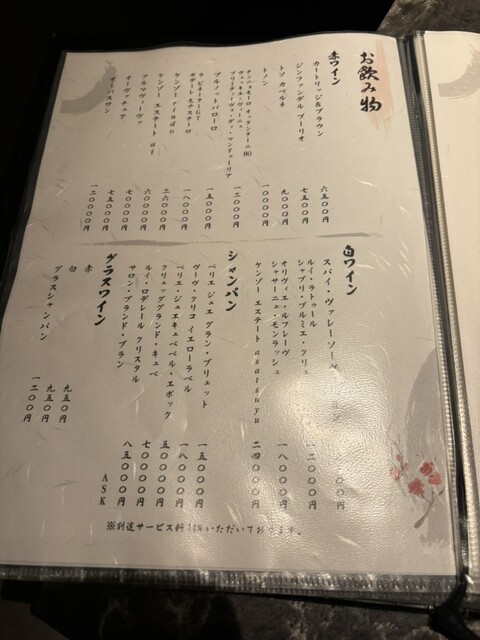 お飲み物
赤ワイン
カートリッジ&ブラウン
ジンファンデル ブーリオ 六五〇〇円
トソ カベルネ 七五〇〇円
トノン 九〇〇〇円
チニョモロ オッタンターニ 80
ヴェッキエ・ヴィーニェ
プリミティーヴォ・ディ・マンドゥーリア 一〇〇〇〇円
ブルノット バローロ 一二〇〇〇円
ラ ピネータ GT
ガデーレ セナステーロ 一五〇〇〇円
ケンゾー rindo 一八〇〇〇円
ケンゾー エステート ai 三六〇〇〇円
アルマヴィーヴァ 六〇〇〇〇円
オーヴァチュア 七〇〇〇〇円
オーパスワン 七五〇〇〇円
一二〇〇〇〇円
白ワイン
スパイ・ヴァレーソー
〇〇〇円
ルイ・ラトゥール
シャブリ・プルミエ・クリュ 一二〇〇〇円
オリヴィエ・ルフレーヴ
シャサーニュ・モンラッシェ 一八〇〇〇円
ケンゾー エステート asatsuyu 二四〇〇〇円
シャンパン
ペリエ ジュエ グラン・ブリュット 一五〇〇〇円
ヴーヴ・クリコ イエローラベル 一八〇〇〇円
ペリエ・ジュエ キュベ ベル・エポック 五〇〇〇〇円
クリュッグ グランド・キュベ 七〇〇〇〇円
ルイ・ロデレール クリスタル 八五〇〇〇円
サロン・ブランド・ブラン ASK
グラスワイン
赤 九五〇円
白 九五〇円
グラスシャンパン 一二〇〇円
※別途サービス料10%いただいております。